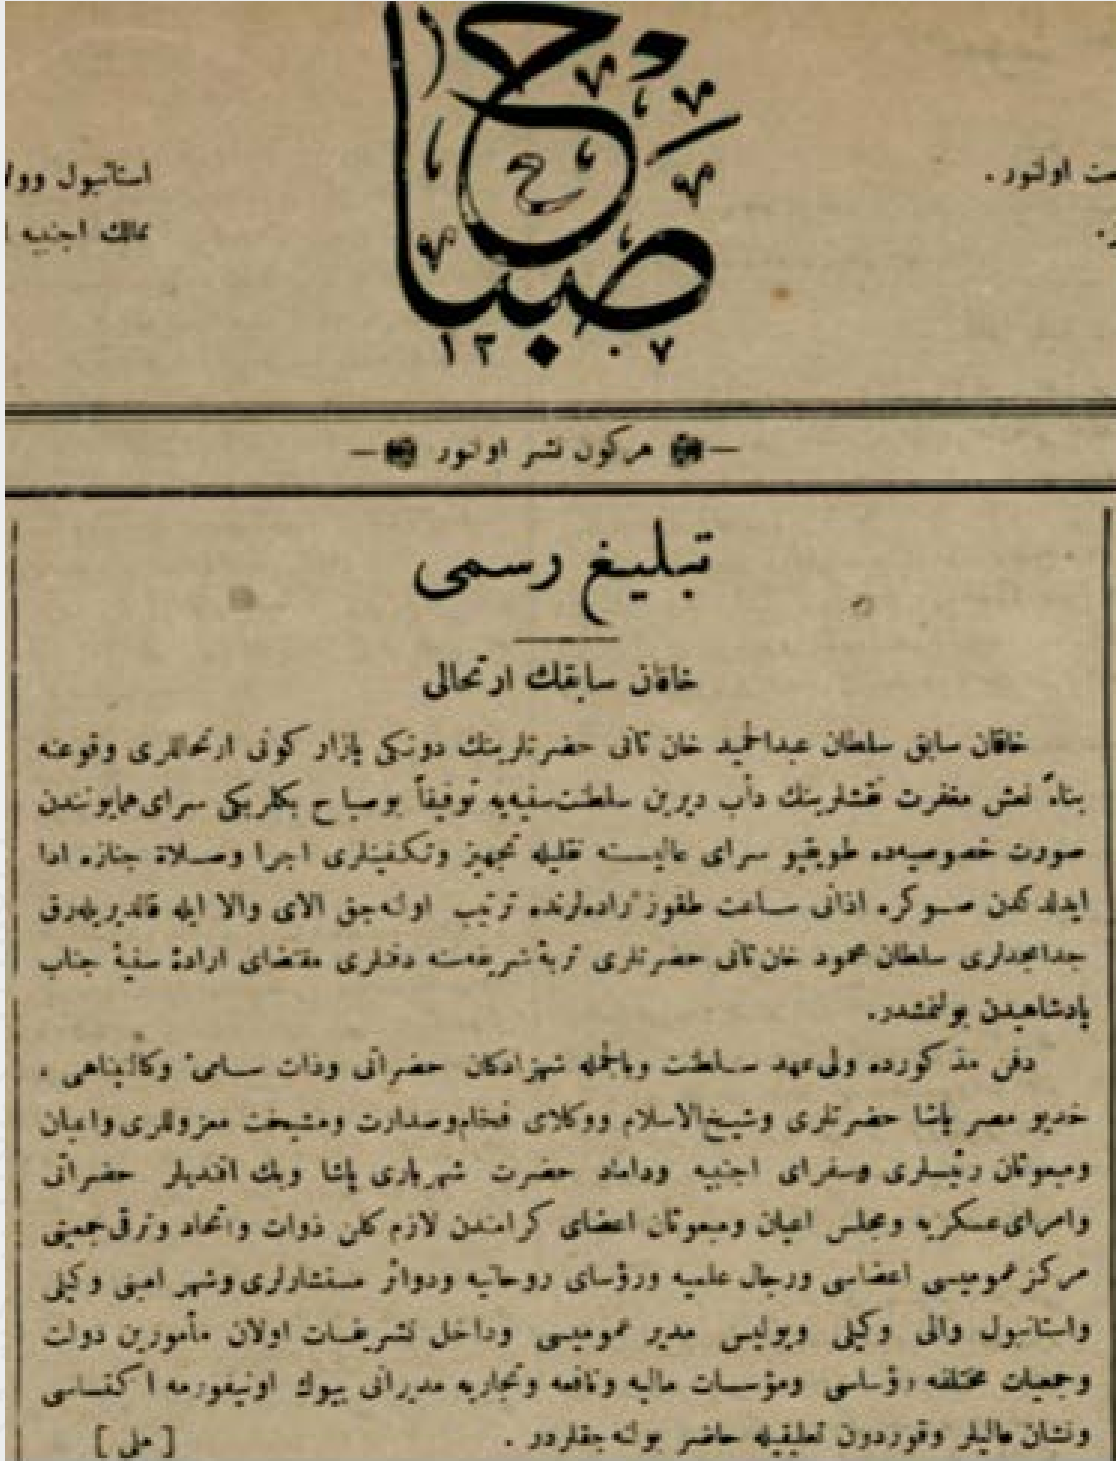 صباح
١٣٠٧
ت اولنور .
استانبول وولا
ممالك اجنبيه
هركون نشر اولنور
تبليغ رسمى
خاقان سابقك ارتحالى
خاقان سابق سلطان عبدالحميد خان ثانى حضرتلرينك دونكى پازار كونى ارتحاللرى وقوعنه
بناءً نعش مغفرت نقشلرينك دأب ديرين سلطنت سنيه يه توفيقاً بوصباح بكلربكى سراى همايونندن
صورت خصوصيه ده طوپقپو سراى عاليسنه نقليله تجهيز وتكفينلرى اجرا وصلاة جنازه ادا
ايدلدكدن صوكره اذانى ساعت طقوز راده لرنده ترتيب اوله جق الاى والا ايله قالديريله رق
جدامجدلرى سلطان محمود خان ثانى حضرتلرى تربۀ شريفه سنه دفنلرى مقتضاى ارادۀ سنيۀ جناب
پادشاهيدن بولنمشدر.
دفن مذكورده ولى عهد سلطنت وبالجمله شهزادكان حضراتى وذات سامئ وكالتپناهى ،
خديو مصر پاشا حضرتلرى وشيخ الاسلام ووكلاى فخام وصدارت ومشيخت معزوللرى واعيان
ومبعوثان رئيسلرى وسفراى اجنبيه وداماد حضرت شهريارى پاشا وبك افنديلر حضراتى
وامراى عسكريه ومجلس اعيان ومبعوثان اعضاى كرامندن لازم كلن ذوات واتحاد وترقى جمعيتى
مركز عموميسى اعضاسى ورجال علميه ورؤساى روحانيه ودوائر مستشارلرى وشهر امينى وكيلى
واستانبول والى وكيلى وپوليس مدير عموميسى وداخل تشريفات اولان مأمورين دولت
وجمعيات مختلفه رؤساسى ومؤسسات ماليه ونافعه وتجاريه مديرانى بيوك اونيفورمه اكتساسى
ونشان عاليلر وقوردون تعليقيله حاضر بوله جقلردر .
[ ملى ]